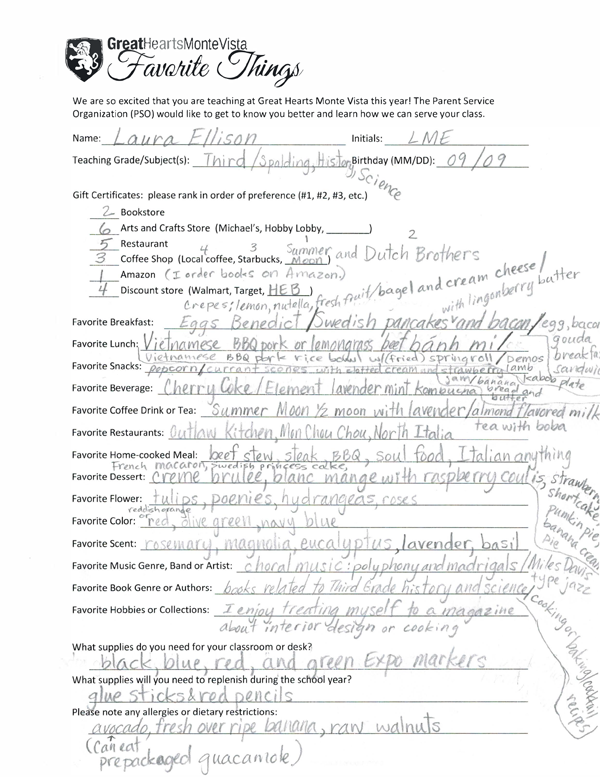 GreatHeartsMonteVista
Favorite Things
We are so excited that you are teaching at Great Hearts Monte Vista this year! The Parent Service
Organization (PSO) would like to get to know you better and learn how we can serve your class.
Name: Laura Ellison Initials: LME
Teaching Grade/Subject(s): Third/Spalding, History, Science Birthday (MM/DD): 09/09
Gift Certificates: please rank in order of preference (#1, #2, #3, etc.)
2 Bookstore
6 Arts and Crafts Store (Michael's, Hobby Lobby, ________)
5 Restaurant
4 3 1 2
3 Coffee Shop (Local coffee, Starbucks, Summer Moon) and Dutch Brothers
1 Amazon (I order books on Amazon)
4 Discount store (Walmart, Target, HEB)
crepes; lemon, nutella, fresh fruit/bagel and cream cheese/
with lingonberry butter
Favorite Breakfast: Eggs Benedict/Swedish pancakes and bacon/egg, bacon
gouda breakfast sandwich
Favorite Lunch: Vietnamese BBQ pork or lemongrass beef bánh mi
Vietnamese BBQ pork rice bowl w/(fried) springroll/Demos lamb kabob plate
Favorite Snacks: popcorn/currant scones with clotted cream and strawberry jam/banana bread and butter
Favorite Beverage: Cherry Coke/Element lavender mint kombucha
Favorite Coffee Drink or Tea: Summer Moon ½ moon with lavender/almond flavored milk
tea with boba
Favorite Restaurants: Outlaw Kitchen, Mon Chou Chou, North Italia
Favorite Home-cooked Meal: beef stew, steak, BBQ, soul food, Italian anything
French macaron, Swedish princess cake,
Favorite Dessert: creme brulee, blanc mange with raspberry coulis, strawberry
shortcake, pumkin pie, banana cream pie
Favorite Flower: tulips, poenies, hydrangeas, roses
reddish orange
Favorite Color: or red, olive green, navy blue
Favorite Scent: rosemary, magnolia, eucalyptus, lavender, basil
Favorite Music Genre, Band or Artist: choral music: polyphony and madrigals/Miles Davis
type jazz
Favorite Book Genre or Authors: books related to Third Grade history and science/
cooking or baking/cocktail recipes
Favorite Hobbies or Collections: I enjoy treating myself to a magazine
about interior design or cooking
What supplies do you need for your classroom or desk?
black, blue, red, and green Expo markers
What supplies will you need to replenish during the school year?
glue sticks & red pencils
Please note any allergies or dietary restrictions:
avocado, fresh over ripe banana, raw walnuts
(Can eat
prepackaged guacamole)